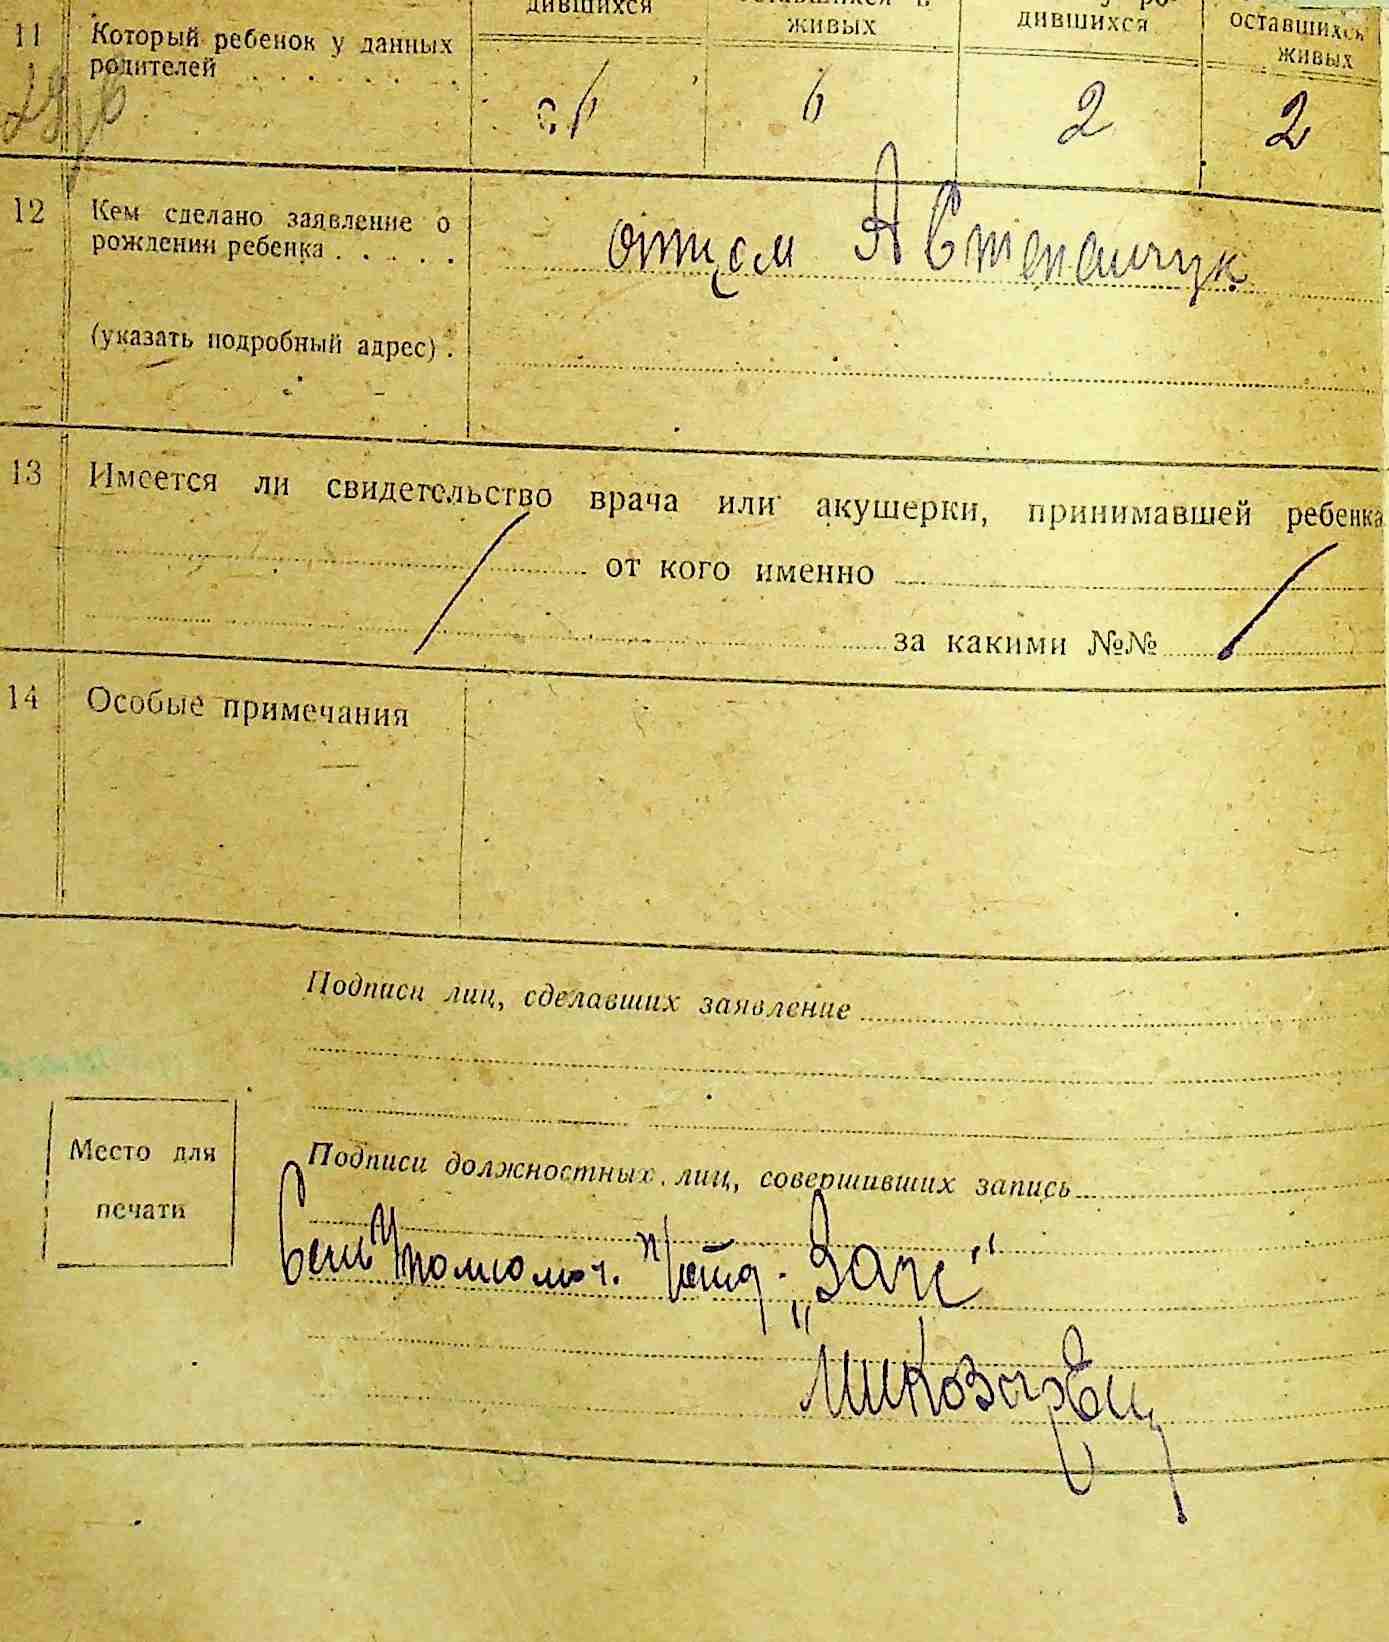 дившихся живых дившихся оставшихся
живых
11 Который ребенок у данных
родителей . . . . . . .
6 6 2 2
12 Кем сделано заявление о
рождении ребенка . . . . .
отцом А Степанчук
(указать подробный адрес) .
13 Имеется ли свидетельство врача или акушерки, принимавшей ребенка
от кого именно
за какими №№
14 Особые примечания
Подписи лиц, сделавших заявление
Место для
печати
Подписи должностных лиц, совершивших запись
"Загс"